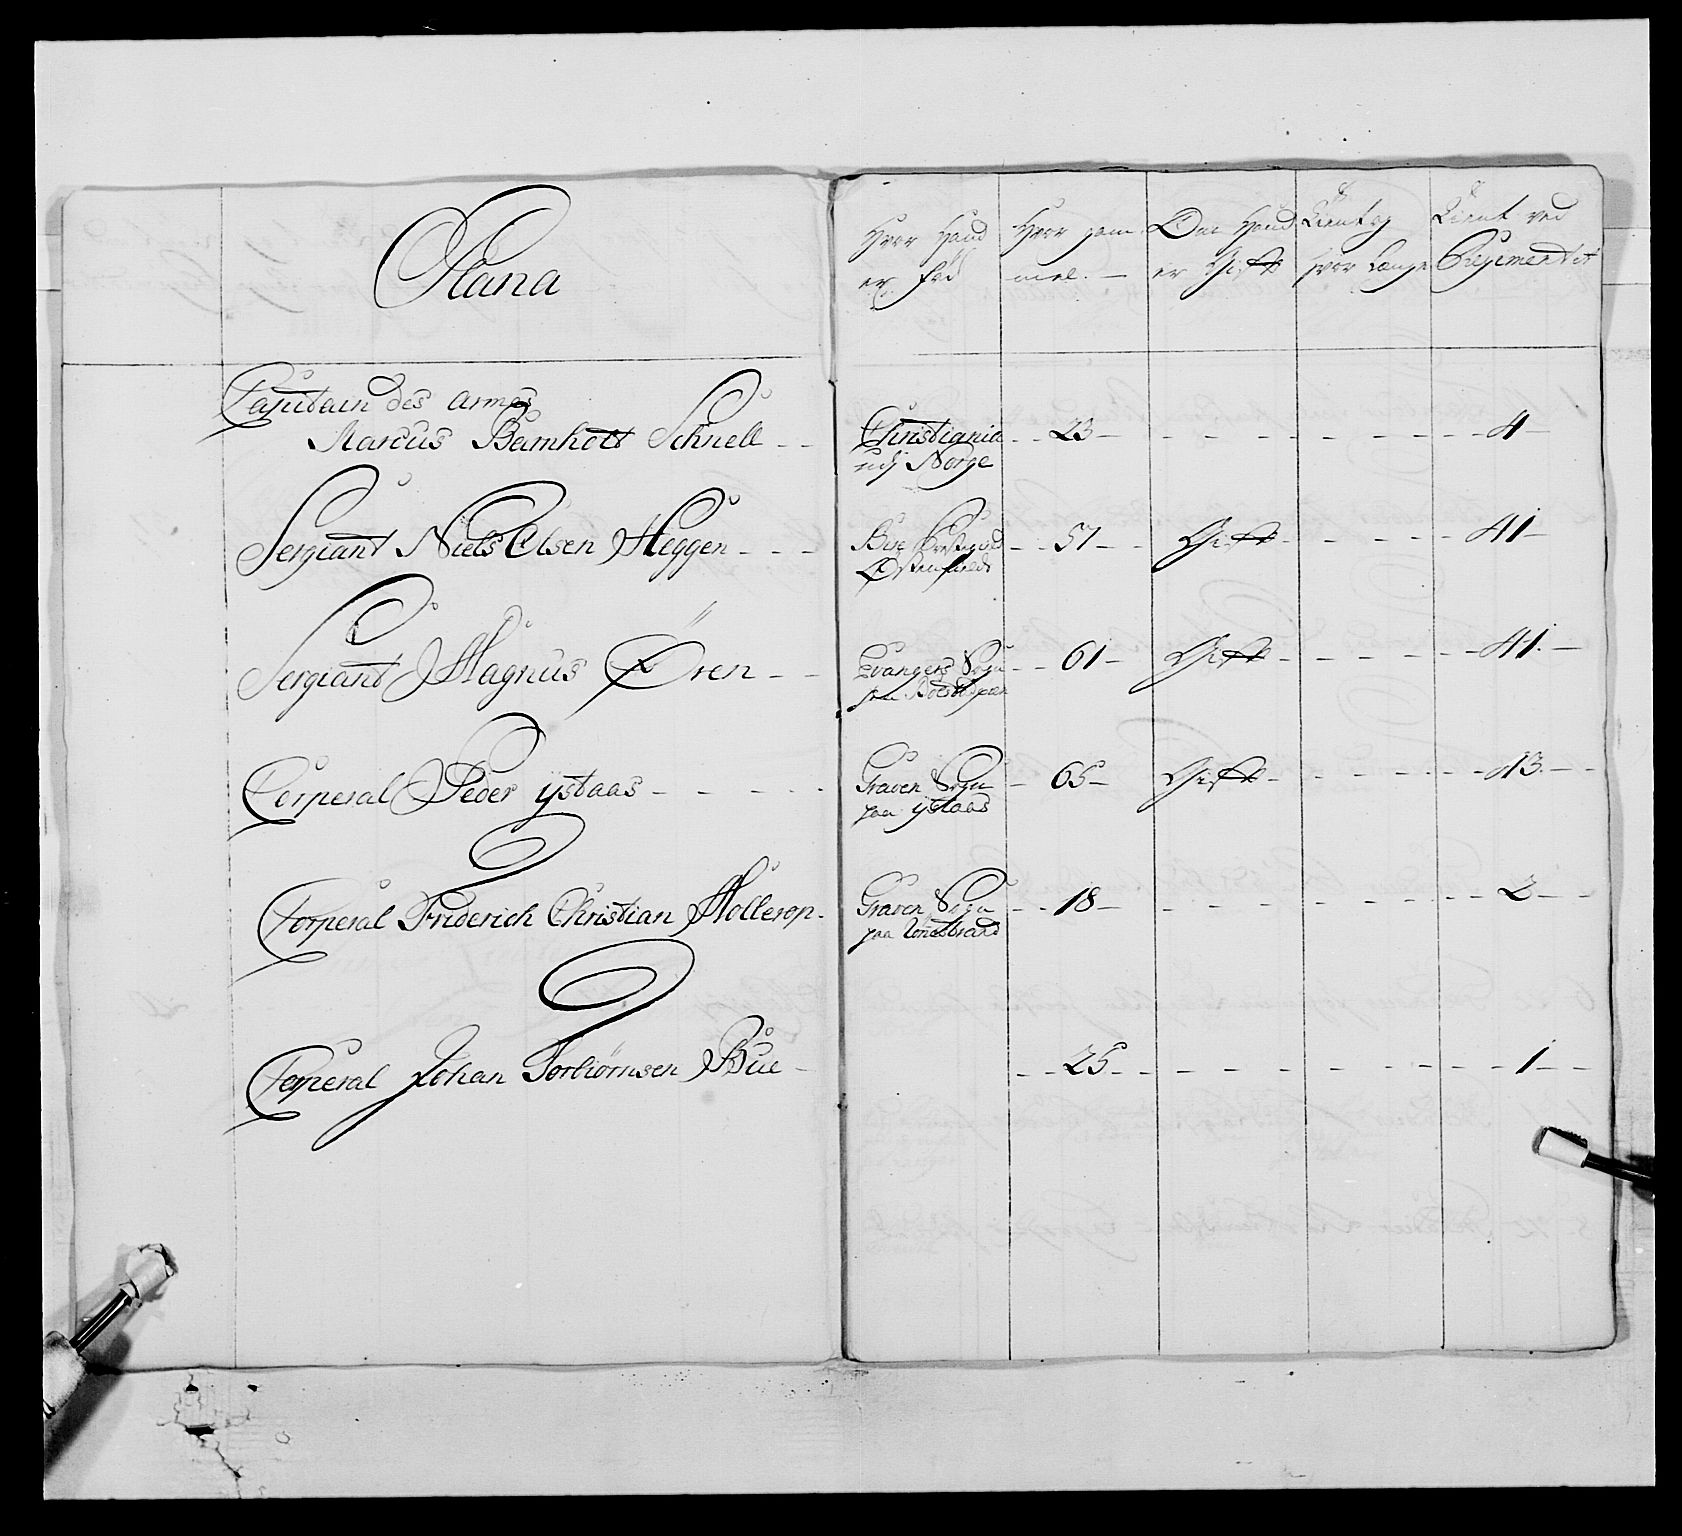 Nana
Hvor Hand er Fød
Hvor gam mel. —
Om Hand er Gift
Tient og hvor Længe
Tient ved Regimentet
Capitain des Armes
Marcus Bernhott Schnell - - Christiania - - 23 - - - - - - - - 4 -
udj Norge
Sergiant Niels Olsen Heggen - - - Bire - - 57 - - Gift - - - - - 41 -
Sergiant Magnus Øren - - Evangers Sogn - - 61 - Gift - - - - - 41 -
Corperal Peder ystaas - - - - - Graven Sogn - 65 - Gift - - - - - 13 - -
paa ystaas
Corperal Friderich Christian Hollerop - Graven Sogn - - 18 - - - - - - - 2 - -
paa
Corperal Johan Torbiörnsen Bue - - - 25 - - - - - - - 1 - -